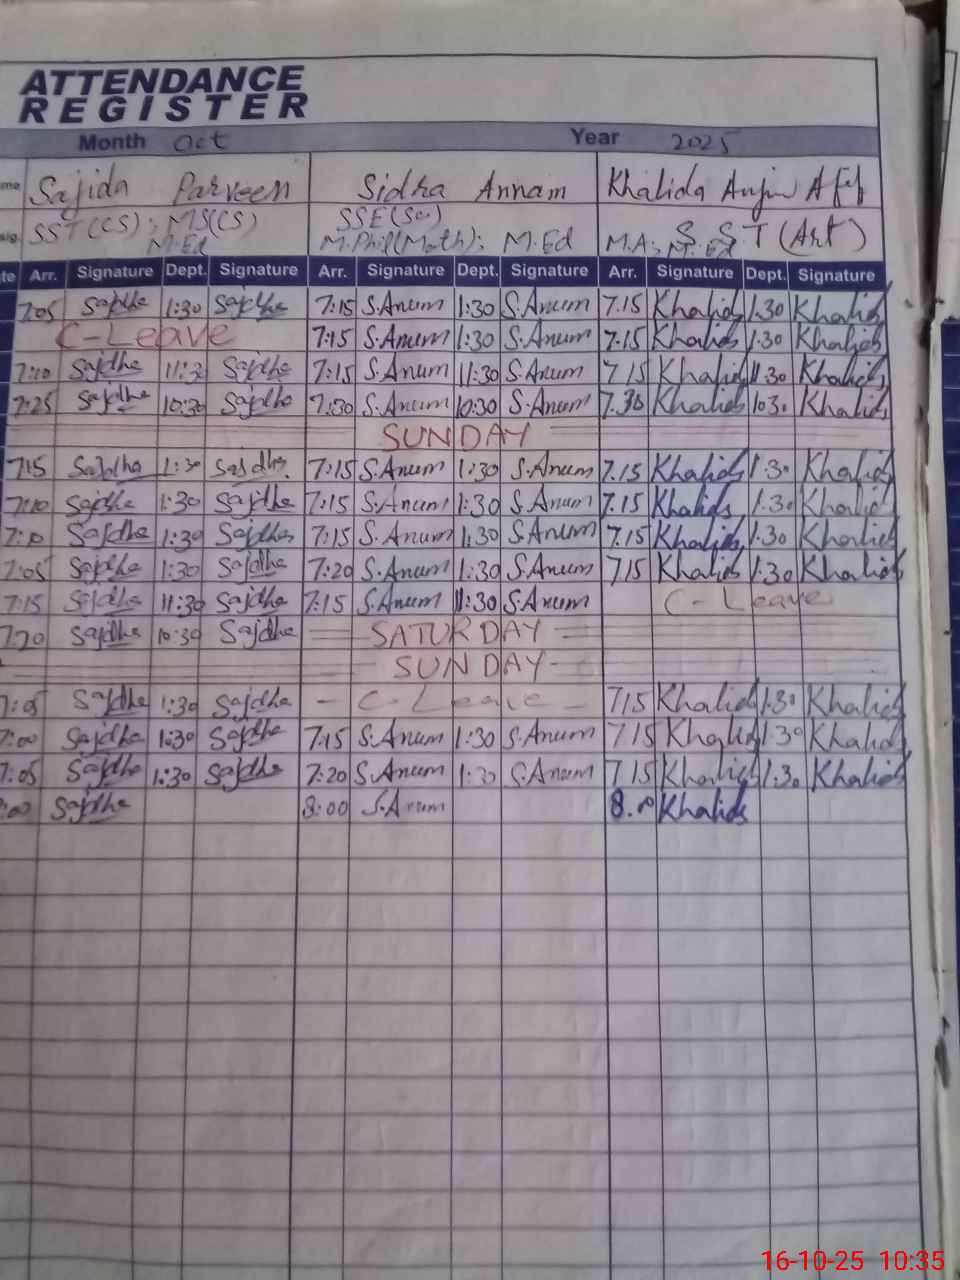 ATTENDANCE
REGISTER
Month Oct Year 2025
me Sajida Parveen Sidra Annam Khalida
sig. SST(CS); MS(CS) SSE(Sc.) S.S.T (Art)
M.Ed M.Phill(Math); M.Ed M.A; M.Ed
te Arr. Signature Dept. Signature Arr. Signature Dept. Signature Arr. Signature Dept. Signature
7:05 Sajdha 1:30 Sajdha 7:15 S.Anum 1:30 S.Anum 7.15 Khalida 1.30 Khalida
C-Leave 7:15 S.Anum 1:30 S.Anum 7.15 Khalida 1.30 Khalida
7:10 Sajdha 11:30 Sajdha 7:15 S.Anum 11:30 S.Anum 7 15 Khalida 11 30 Khalida
7:25 Sajdha 10:30 Sajdha 7:30 S.Anum 10:30 S.Anum 7.30 Khalida 10 30 Khalida
SUNDAY
7:15 Sajdha 1:30 Sajdha 7:15 S.Anum 1:30 S.Anum 7.15 Khalida 1.30 Khalida
7:10 Sajdha 1:30 Sajdha 7:15 S.Anum 1:30 S.Anum 7.15 Khalida 1.30 Khalida
7:10 Sajdha 1:30 Sajdha 7:15 S.Anum 1:30 S.Anum 7.15 Khalida 1.30 Khalida
7:05 Sajdha 1:30 Sajdha 7:20 S.Anum 1:30 S.Anum 7 15 Khalida 1.30 Khalida
7:15 Sajdha 11:30 Sajdha 7:15 S.Anum 11:30 S.Anum C-Leave
7:20 Sajdha 10:30 Sajdha SATURDAY
SUNDAY
7:05 Sajdha 1:30 Sajdha - C-Leave - 7 15 Khalida 1.30 Khalida
7:00 Sajdha 1:30 Sajdha 7:15 S.Anum 1:30 S.Anum 7 15 Khalida 1.30 Khalida
7:05 Sajdha 1:30 Sajdha 7:20 S.Anum 1:30 S.Anum 7 15 Khalida 1.30 Khalida
:00 Sajdha 8:00 S.Anum 8.00 Khalida
16-10-25 10:35